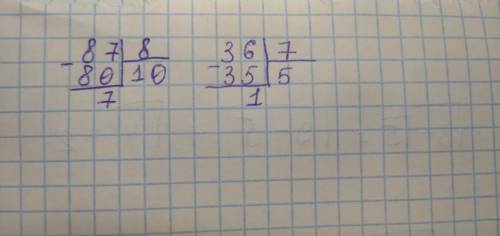 - 87 | 8    - 36 | 7
80 | 10    35 | 5
7    1